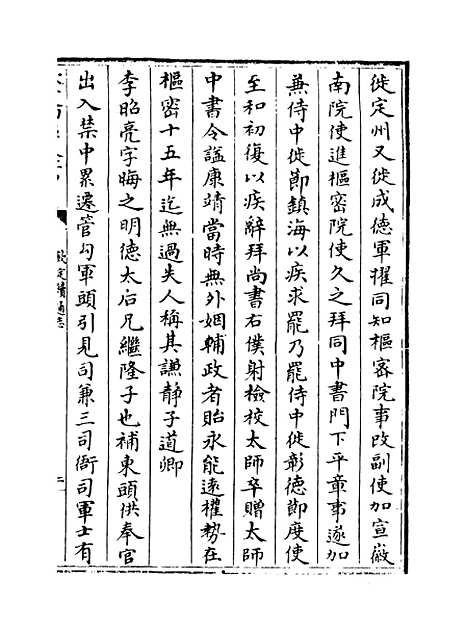 徙定州又徙成德軍擢同知樞密院事改副使加宣徽
南院使進樞密院使久之拜同中書門下平章事遂加
兼侍中徙節鎮海以疾求罷乃罷侍中徙彰德節度使
至和初復以疾辭拜尚書右僕射檢校太師卒贈太師
中書令謚康靖當時無外姻輔政者貽永能遠權勢在
樞密十五年迄無過失人稱其謙静子道卿
李昭亮字晦之明德太后兄繼隆子也補東頭供奉官
出入禁中累遷管勾軍頭引見司兼三司衙司軍士有
欽定續通志